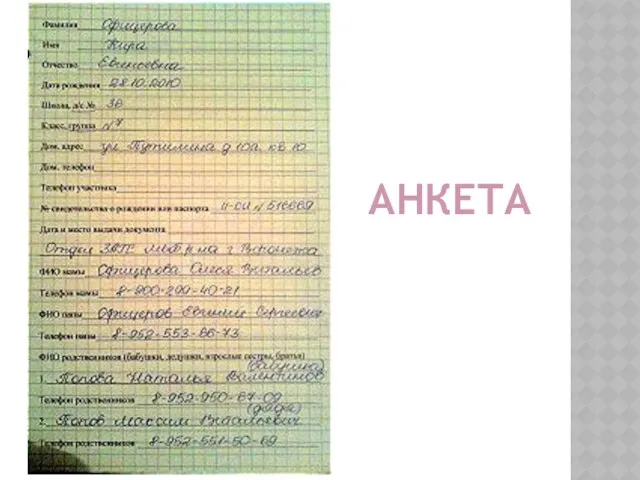 Фамилия Офицерова
Имя Кира
Отчество Евгеньевна
Дата рождения 28.10.2010
Школа, д/с № 36
Класс, группа №7
Дом. адрес ул д 10а кв 10
Дом. телефон
Телефон участника
№ свидетельства о рождении или паспорта 516669
Дата и место выдачи документа
Отдел ЗАГС г Воронежа
ФИО мамы Офицерова Олеся
Телефон мамы 8-900-299-40-21
ФИО папы Офицеров Евгений Сергеевич
Телефон папы 8-952-553-66-73
ФИО родственников (бабушки, дедушки, взрослые сестры, братья)
1. Попова Наталья
Телефон родственников 8-952-950-67-09
(дядя)
2. Попов Максим
Телефон родственников 8-952-551-50-69
АНКЕТА